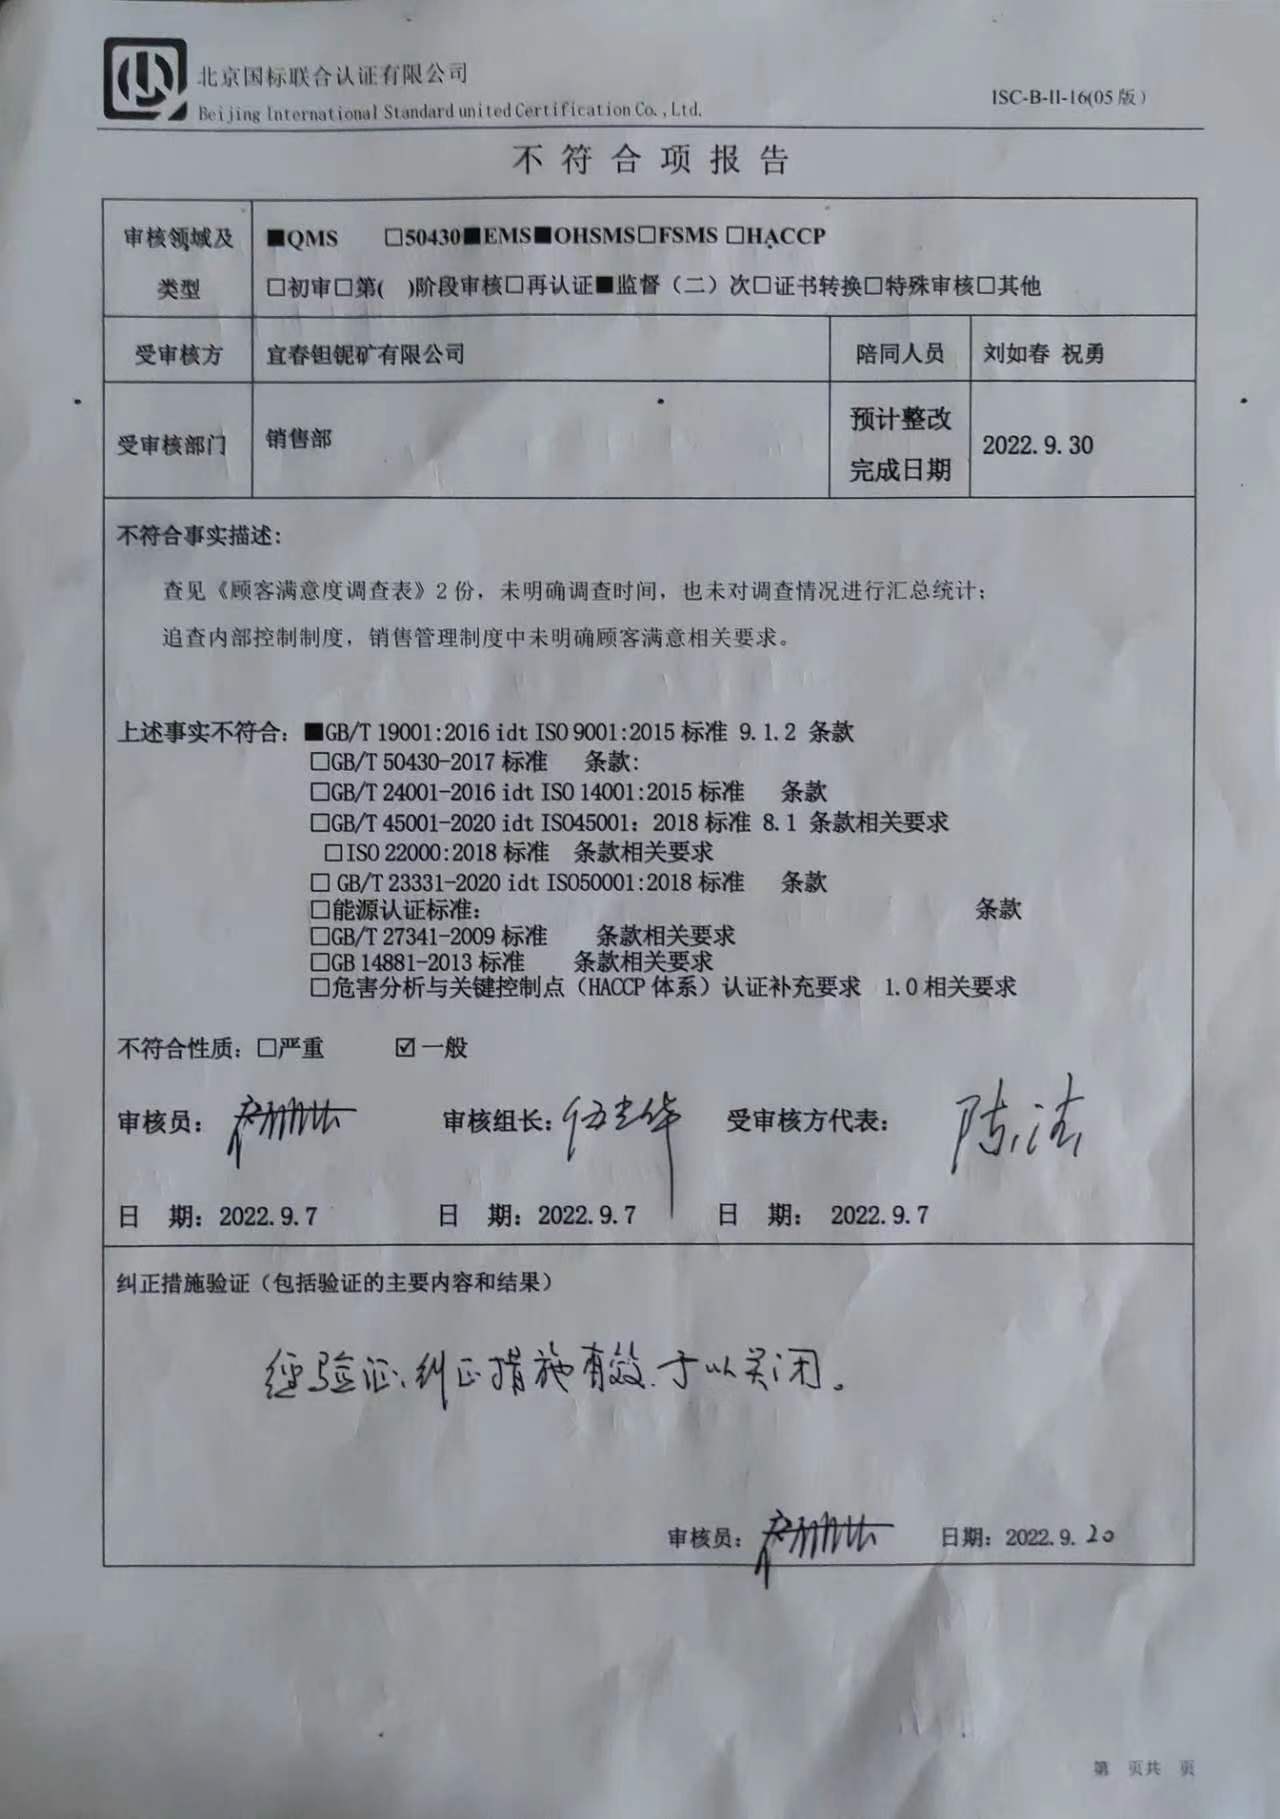 北京国标联合认证有限公司
Beijing International Standard united Certification Co.,Ltd.
ISC-B-II-16(05版)
不符合项报告
审核领域及类型
■QMS □50430■EMS■OHSMS□FSMS □HACCP
□初审□第( )阶段审核□再认证■监督（二）次□证书转换□特殊审核□其他
受审核方 宜春钽铌矿有限公司 陪同人员 刘如春 祝勇
受审核部门 销售部 预计整改完成日期 2022.9.30
不符合事实描述：
查见《顾客满意度调查表》2份，未明确调查时间，也未对调查情况进行汇总统计；
追查内部控制制度，销售管理制度中未明确顾客满意相关要求。
上述事实不符合：■GB/T 19001:2016 idt ISO 9001:2015 标准 9.1.2 条款
□GB/T 50430-2017 标准 条款:
□GB/T 24001-2016 idt ISO 14001:2015 标准 条款
□GB/T 45001-2020 idt ISO45001：2018 标准 8.1 条款相关要求
□ISO 22000:2018 标准 条款相关要求
□ GB/T 23331-2020 idt ISO50001:2018 标准 条款
□能源认证标准： 条款
□GB/T 27341-2009 标准 条款相关要求
□GB 14881-2013 标准 条款相关要求
□危害分析与关键控制点（HACCP 体系）认证补充要求 1.0 相关要求
不符合性质：□严重 ☑一般
审核员： 审核组长： 受审核方代表：
日 期：2022.9.7 日 期：2022.9.7 日 期： 2022.9.7
纠正措施验证（包括验证的主要内容和结果）
经验证、纠正措施有效.予以关闭。
审核员： 日期：2022.9.20
第 页共 页